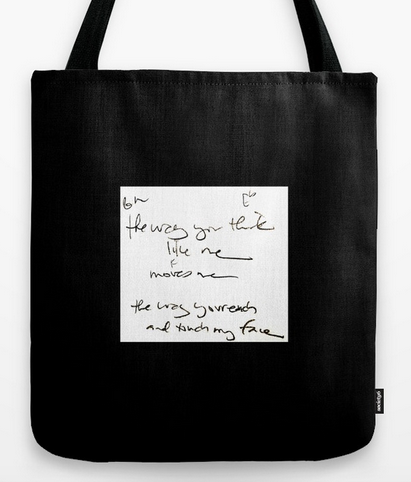 Bm Eb
the way you think
like me
F
moves me
the way you reach
and touch my face
society6